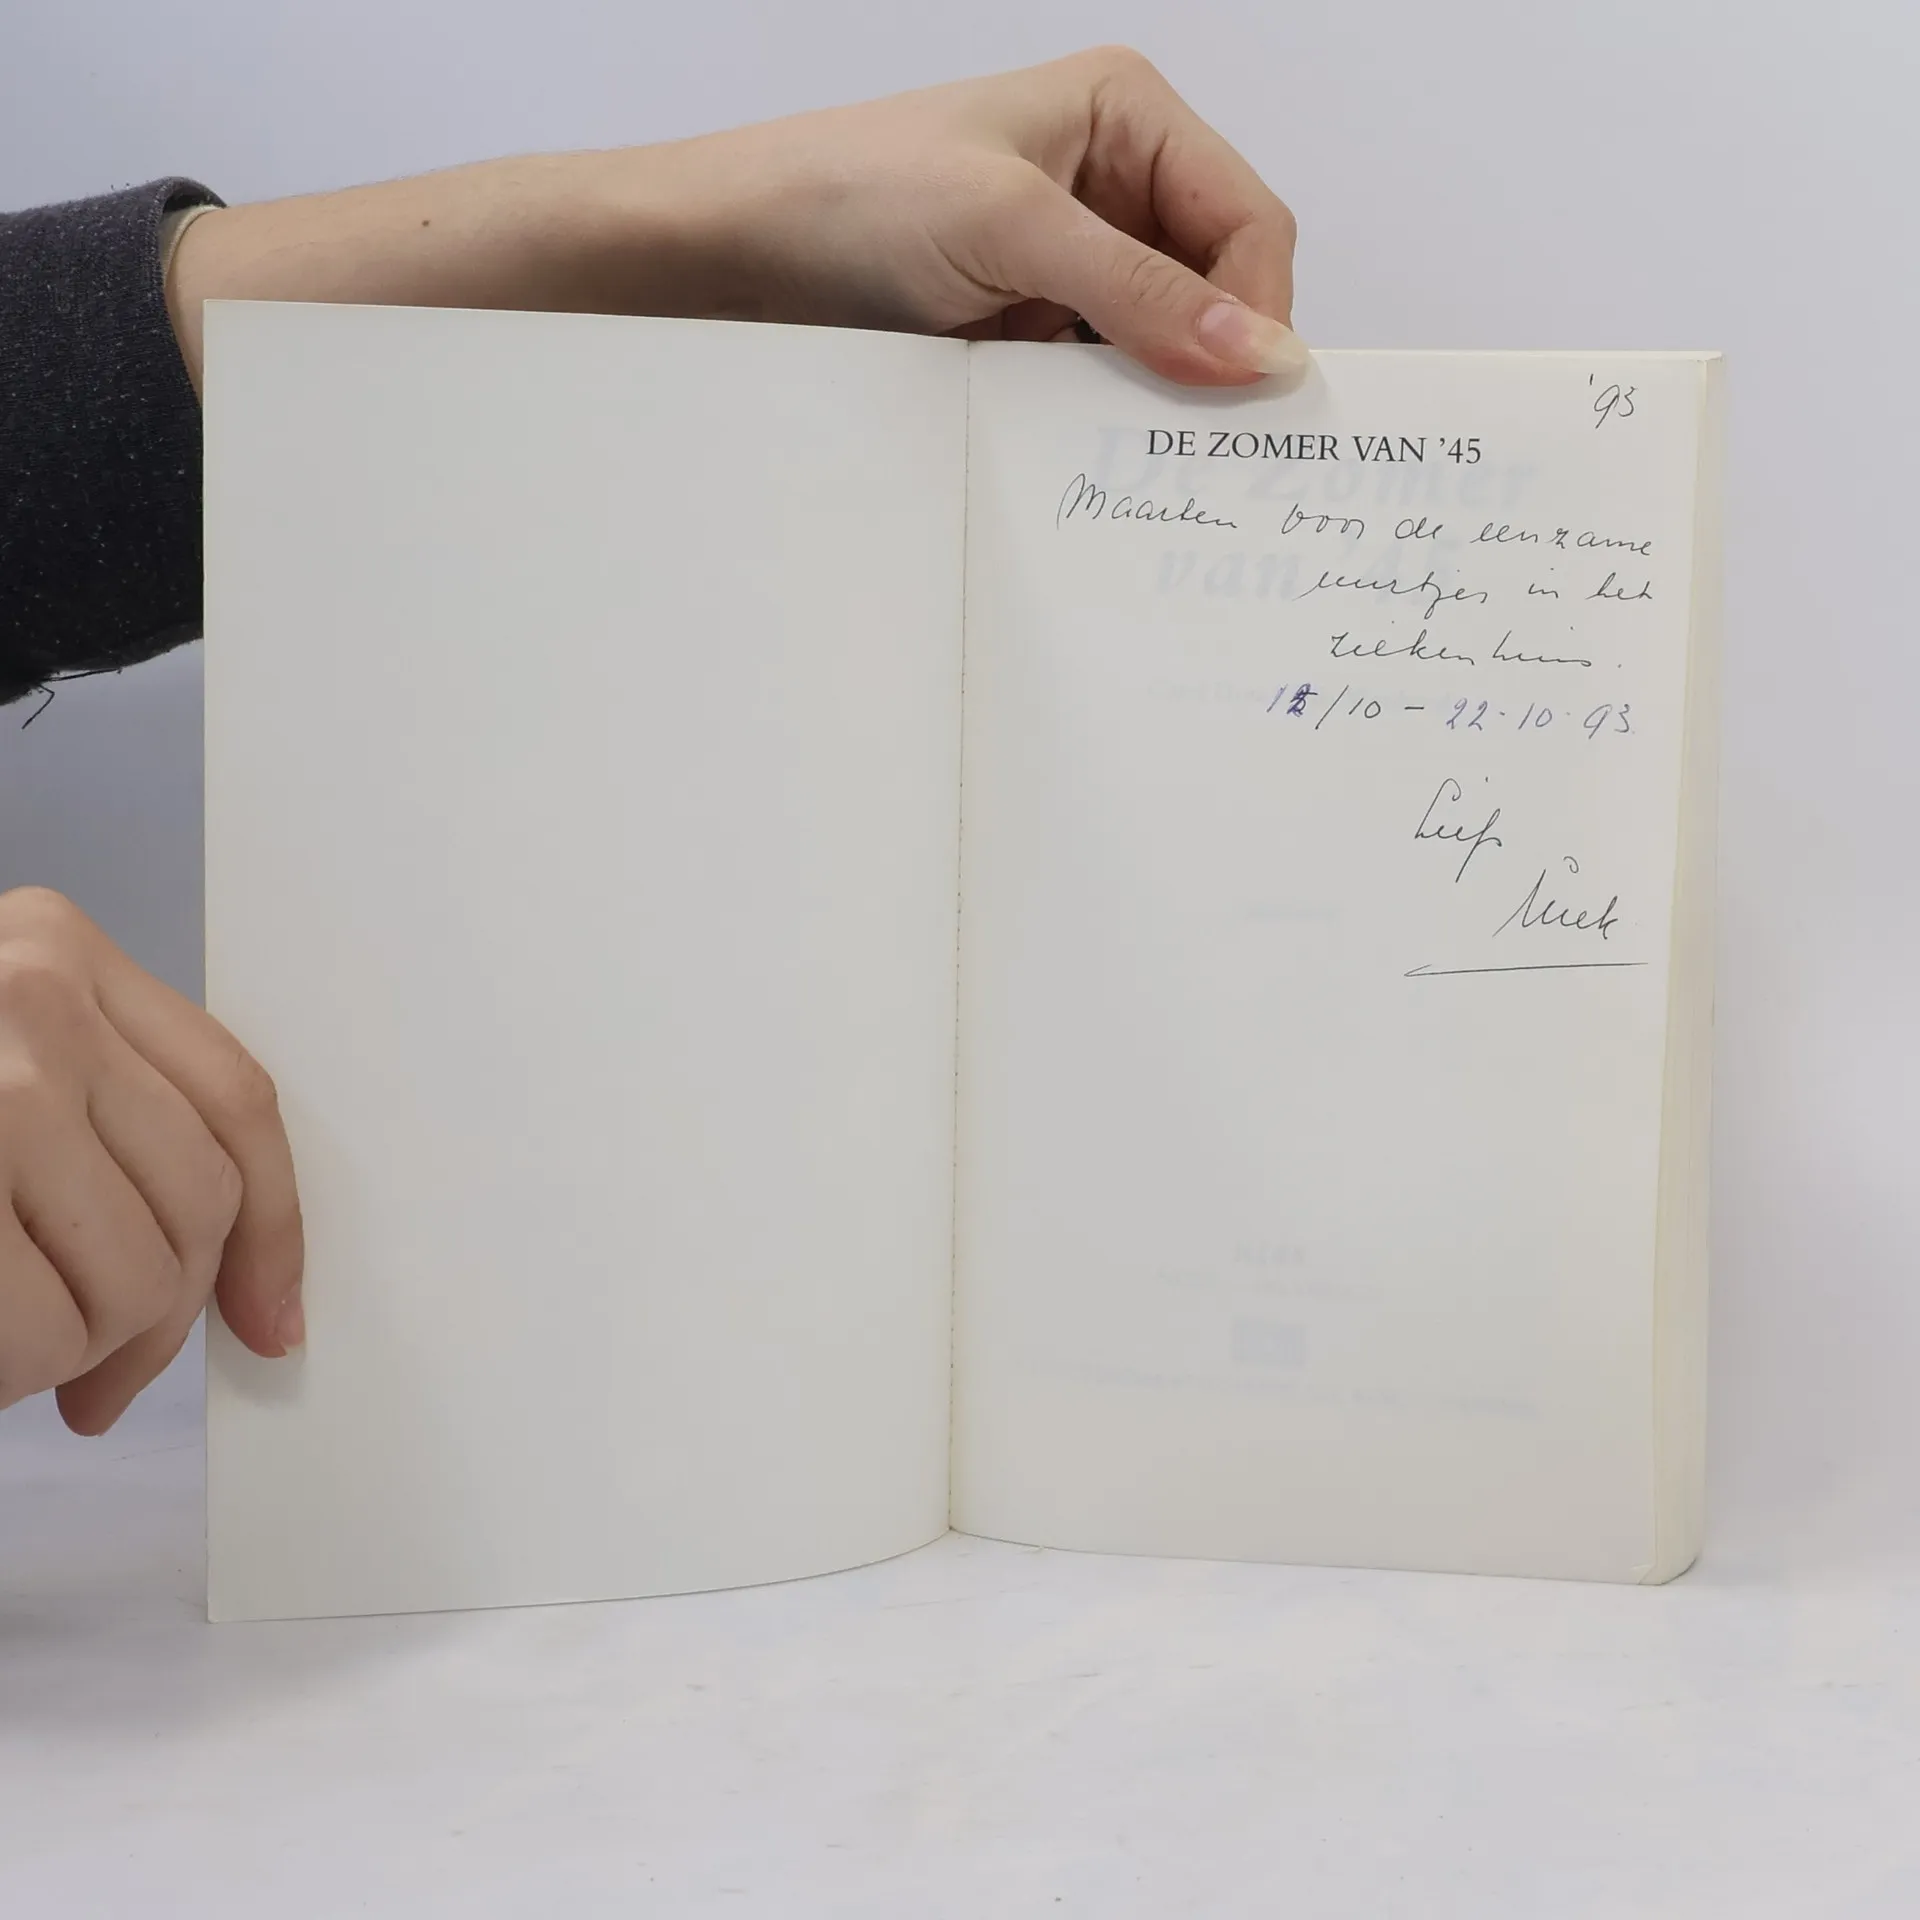 '93
DE ZOMER VAN '45
Maarten voor de eenzame
uurtjes in het
ziekenhuis.
/10 - 22.10.93.
Liefs